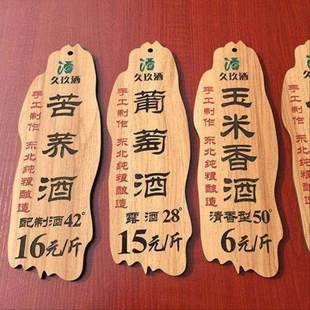 酒
久玖酒
苦荞酒
手工制作 东北纯粮酿造
配制酒42°
16元/斤
酒
久玖酒
葡萄酒
手工制作 东北纯粮酿造
露酒 28°
15元/斤
酒
久玖酒
玉米香酒
手工制作 东北纯粮酿造
清香型50°
6元/斤